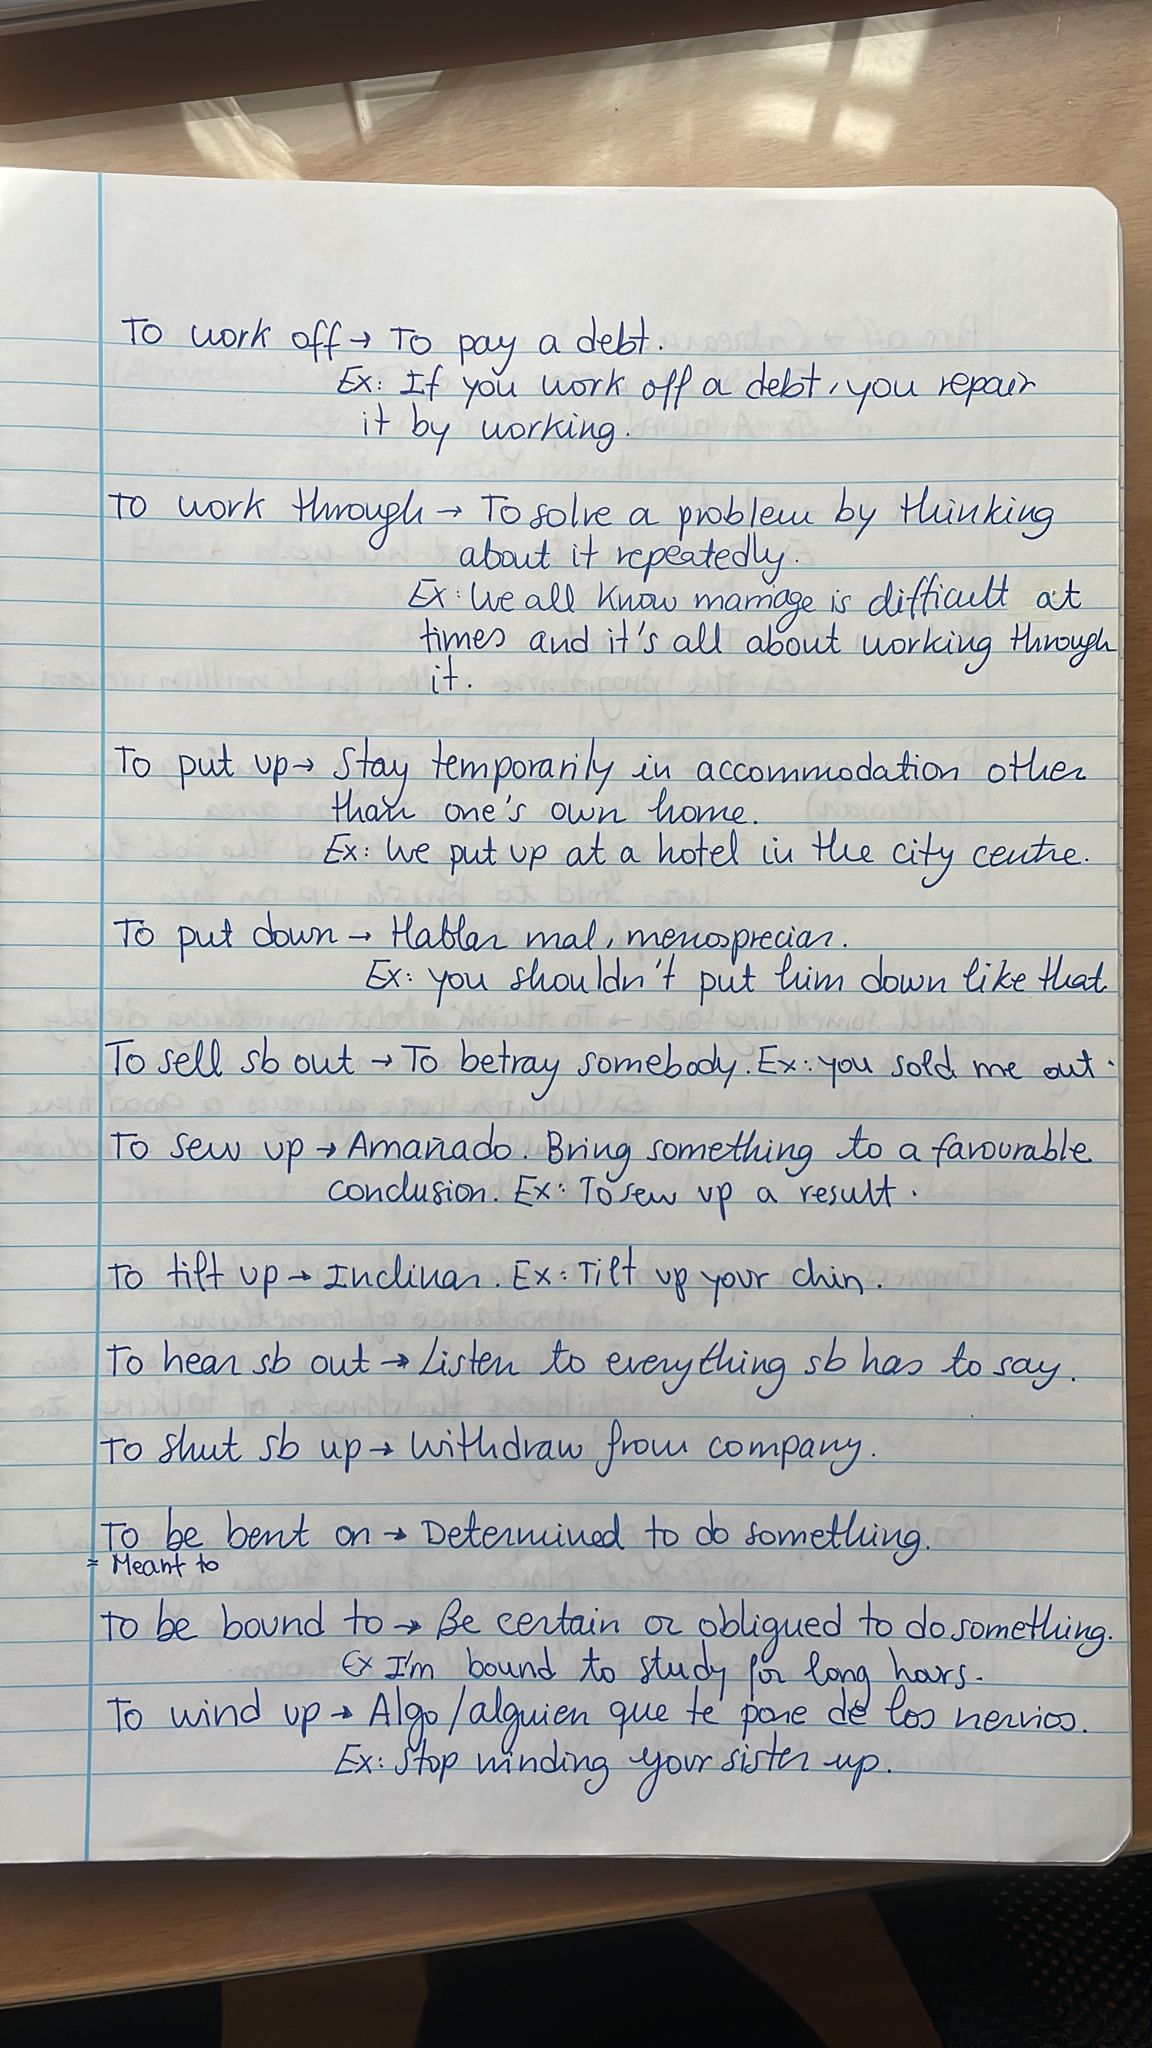 To work off → To pay a debt.
Ex: If you work off a debt, you repair
it by working.
To work through → To solve a problem by thinking
about it repeatedly.
Ex: We all know marriage is difficult at
times and it's all about working through
it.
To put up → Stay temporarily in accommodation other
than one's own home.
Ex: We put up at a hotel in the city centre.
To put down → Hablar mal, menospreciar.
Ex: you shouldn't put him down like that
To sell sb out → To betray somebody. Ex: you sold me out.
To sew up → Amañado. Bring something to a favourable
conclusion. Ex: To sew up a result.
To tilt up → Inclinar. Ex: Tilt up your chin.
To hear sb out → Listen to everything sb has to say.
To shut sb up → Withdraw from company.
To be bent on → Determined to do something.
= Meant to
To be bound to → Be certain or obligued to do something.
Ex I'm bound to study for long hours.
To wind up → Algo/alguien que te pone de los nervios.
Ex: Stop winding your sister up.